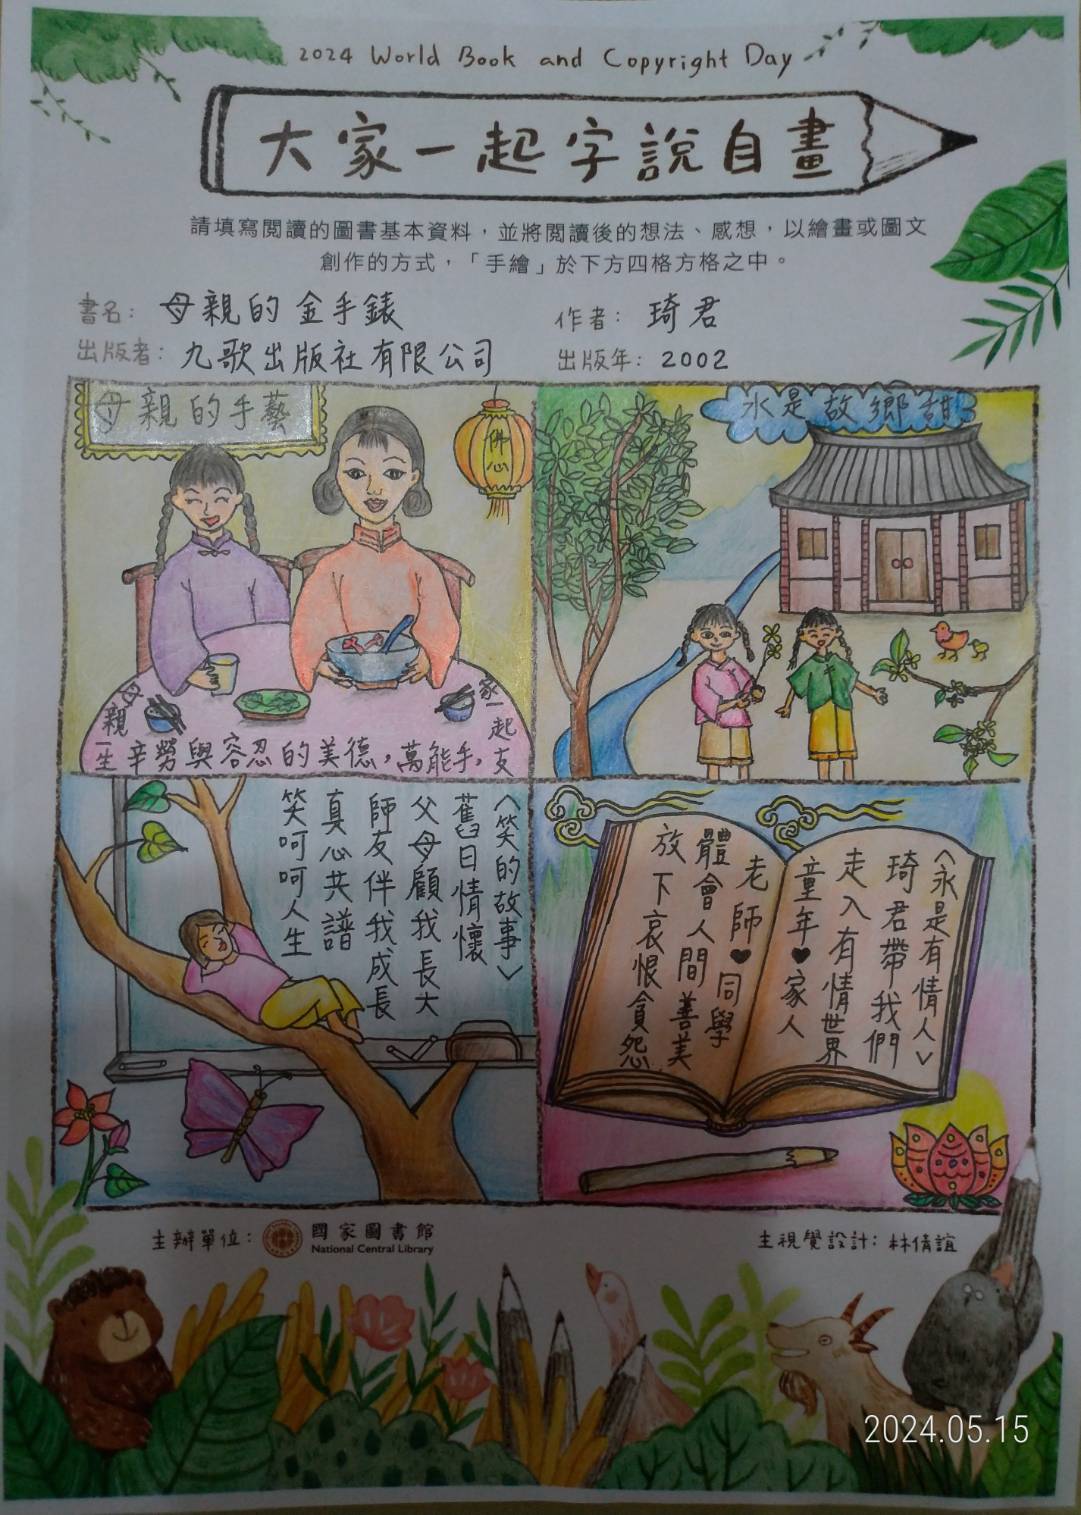 2024 World Book and Copyright Day
大家一起字說自畫
請填寫閱讀的圖書基本資料，並將閱讀後的想法、感想，以繪畫或圖文
創作的方式，「手繪」於下方四格方格之中。
書名： 母親的金手錶
作者： 琦君
出版者： 九歌出版社有限公司
出版年： 2002
母親的手藝
佛心
母親一生辛勞與容忍的美德，萬能手，友
家一起
水是故鄉甜
〈笑的故事〉
舊日情懷
父母顧我長大
師友伴我成長
真心共譜
笑呵呵人生
〈永是有情人〉
琦君帶我們
走入有情世界
童年♥家人
老師♥同學
體會人間善美
放下哀恨貪怨
主辦單位：
國家圖書館
National Central Library
主視覺設計：林倩誼
2024.05.15